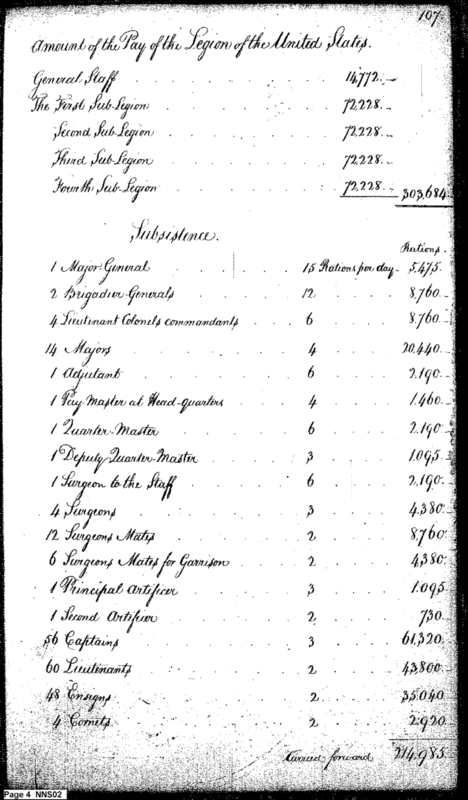 107.
Amount of the Pay of the Legion of the United States.
General Staff 14,772.
The First Sub-Legion 72,228.
Second Sub-Legion 72,228.
Third Sub-Legion 72,228.
Fourth Sub-Legion 72,228. 303,684.
Subsistence.
Rations.
1 Major General 15 Rations per day 5,475.
2 Brigadier Generals 12 8,760.
4 Lieutenant Colonels commandants 6 8,760.
14 Majors 4 20,440.
1 Adjutant 6 2,190.
1 Pay Master at Head-quarters 4 1,460.
1 Quarter-Master 6 2,190.
1 Deputy Quarter-Master 3 1,095.
1 Surgeon to the Staff 6 2,190.
4 Surgeons 3 4,380.
12 Surgeons Mates 2 8,760.
6 Surgeons Mates for Garrison 2 4,380.
1 Principal Artificer 3 1,095.
1 Second Artificer 2 730.
56 Captains 3 61,320.
60 Lieutenants 2 43,800.
48 Ensigns 2 35,040.
4 Cornets 2 2,920.
Carried forward 214,985.
Page 4 NNS02